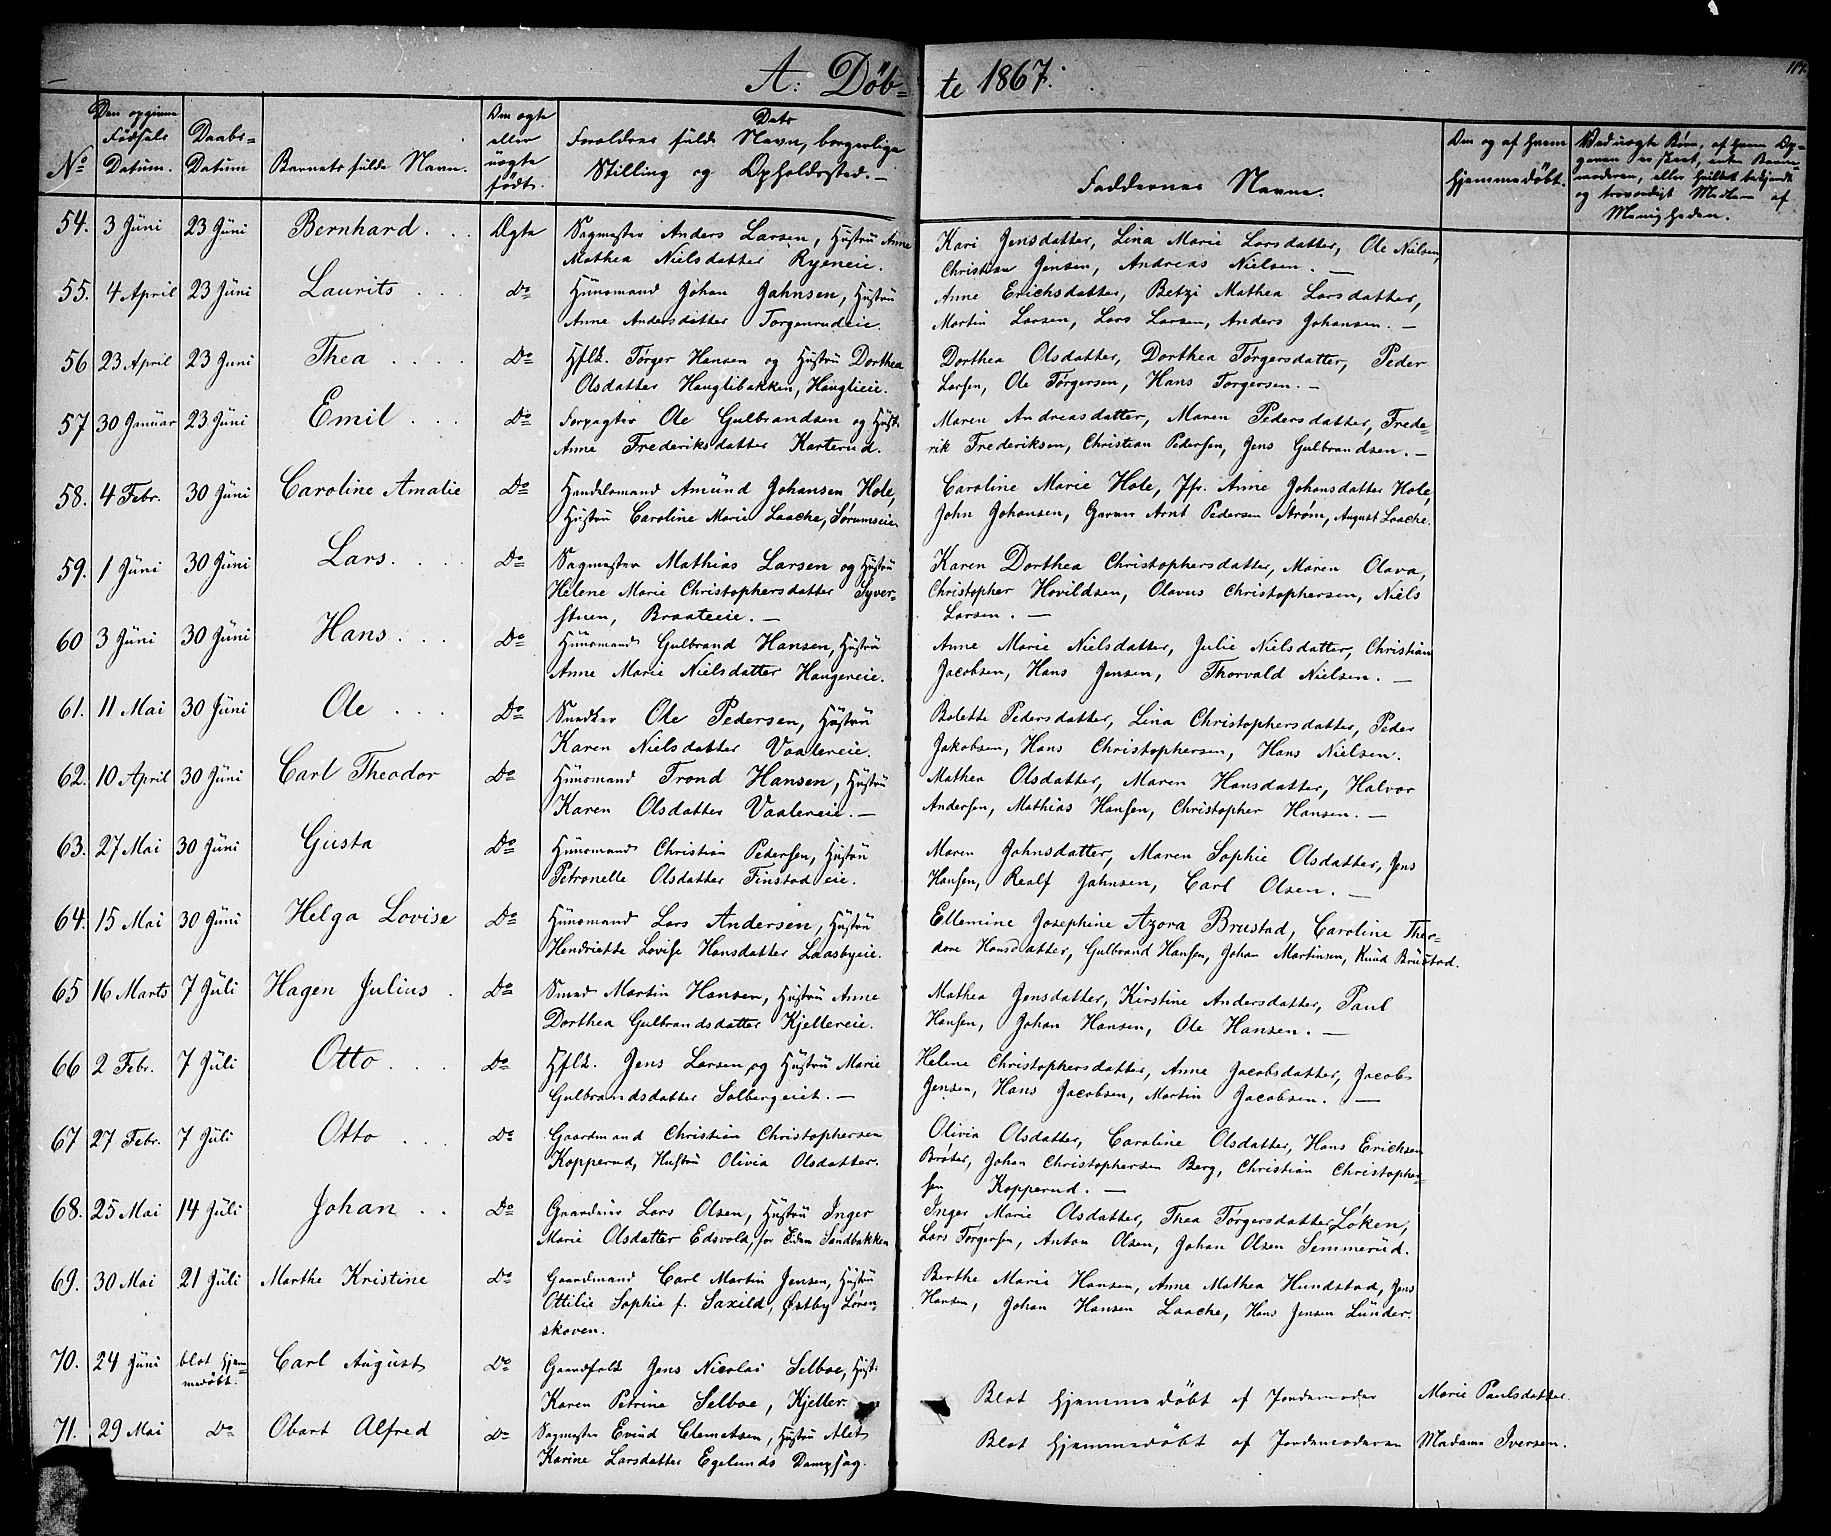 A: Døb- te 1867.
No
Den opgivne Fødsels Datum.
Daabs- Datum
Barnets fulde Navn.
Den ægte eller uægte fødte.
Dets Forældres fulde Navn, borgerlige
Stilling og Opholdssted.
Faddernes Navne.
Om og af hvem hjemmedøbt.
54. 3 Júni 23 Júni Bernhard . . Ægte Sagmester Anders Larsen, Hustrú Anne
Mathea Nielsdatter Ryeneie.
Kari Jensdatter, Lina Marie Larsdatter, Ole Nielsen,
Christian Jensen, Andreas Nielsen. —
55. 4 April 23 Júni Laurits . . Do Húusmand Johan Jahnsen, Hustrú
Anne Andersdatter Torgenrudeie.
Anne Erichsdatter, Betzi Mathea Larsdatter,
Martin Larsen, Lars Larsen, Anders Johansen. —
56 23 April 23 Juni Thea . . . . Do Hflk. Tørger Hansen og Hustrú Dorthea
Olsdatter Hauglibakken, Hauglieie.
Dorthea Olsdatter, Dorthea Tørgersdatter, Peder
Larsen, Ole Tørgersen, Hans Torgersen. —
57 30 Janúar 23 Júni Emil . . . Do Forpagter Ole Gulbrandsen og Hust.
Anne Frederiksdatter Karterud.
Maren Andreasdatter, Maren Pedersdatter, Frede-
rik Frederiksen, Christian Pedersen, Jens Gulbrandsen. —
58. 4 Febr. 30 Júni Caroline Amalie Do Handelsmand Amúnd Johansen Hole,
Hustrú Caroline Marie Laache, Sørumseie
Caroline Marie Hole, Jfr. Anne Johansdatter Hole,
John Johansen, Garver Arnt Pedersen Strøm, August Laache.
59. 1 Júni 30 Júni Lars. . . . Do Sagmester Mathias Larsen og Hústrú
Helene Marie Christophersdatter Syver-
stuen, Braateeie. —
Karen Dorthea Christophersdatter, Maren Olava,
Christopher Hovildsen, Olavus Christophersen, Niels
Larsen. —
60 3 Júni 30 Júni Hans . . . Do Húusmand Gulbrand Hansen, Hústrú
Anne Marie Nielsdatter Haugereie.
Anne Marie Nielsdatter, Julie Nielsdatter, Christian
Jacobsen, Hans Jensen, Thorvald Nielsen. —
61. 11 Mai 30 Júni Ole . . . Do Snedker Ole Pedersen, Hústrú
Karen Nielsdatter Vaalereie.
Bolette Pedersdatter, Lina Christophersdatter, Peder
Jakobsen, Hans Christophersen, Hans Nielsen.
62. 10 April 30 Júni Carl Theodor Do Húusmand Trond Hansen, Hústrú
Karen Olsdatter Vaalereie. —
Mathea Olsdatter, Maren Hansdatter, Halvor
Andersen, Mathias Hansen, Christopher Hansen. —
63. 27 Mai 30 Júni Gústa Do Húusmand Christian Pedersen, Hústrú
Petronelle Olsdatter Finstad eie.
Maren Johnsdatter, Maren Sophie Olsdatter, Jens
Hansen, Realf Jahnsen, Carl Olsen. —
64. 15 Mai 30 Júni Helga Lovise Do Húusmand Lars Andersen, Hústrú
Hendriette Lovise Hansdatter Laasbyeie.
Ellemine Josephine Azora Brustad, Caroline Theo-
dore Hansdatter, Gulbrand Hansen, Johan Martinsen, Knúd Brústad.
65 16 Marts 7 Júli Hagen Julius . Do Smed Martin Hansen, Hústrú Anne
Dorthea Gulbrandsdatter Kjellereie.
Mathea Jensdatter, Kirstine Andersdatter, Paul
Hansen, Johan Hansen, Ole Hansen. —
66 2 Febr. 7 Júli Otto . . . Do Hflk. Jens Larsen og Hústrú Marie
Gulbrandsdatter Solbergeiet. —
Helene Christophersdatter, Anne Jacobsdatter, Jacob
Jensen, Hans Jacobsen, Martin Jacobsen. —
67 27 Febr. 7 Júli Otto . . . Do Gaardmand Christian Christophersen
Kopperud, Hustrú Olivia Olsdatter.
Olivia Olsdatter, Caroline Olsdatter, Hans Erichsen
Bråter, Johan Christophersen Berg, Christian Christopher-
sen Kopperud. —
68. 25 Mai 14 Júli Johan . . Do Gaardeier Lars Olsen, Hústrú Inger
Marie Olsdatter Edsvold, før Eier Sandbakken
Inger Marie Olsdatter, Thea Tørgersdatter Løken,
Lars Torgersen, Anton Olsen, Johan Olsen Semmerúd.
69. 30 Mai 21 Júli Marthe Kristine Do Gaardmand Carl Martin Jensen, Hústrú
Ottilie Sophie f. Saxild, Østby Lören-
skoven.
Berthe Marie Hansen, Anne Mathea Hundstad, Jens
Hansen, Johan Hansen Laache, Hans Jensen Lúnder.
70. 24 Júni blot hjem- medøbt. Carl August Do Gaardfolk Jens Nicolai Selboe, Hust.
Karen Petrine Selboe, Kjeller.
Blot hjemmedøbt af Jordemoder Marie Paulsdatter.
71. 29 Mai Do Obart Alfred Do Sagmester Evind Clemetsen, Hústrú Alet
Karine Larsdatter Egelunds Dampsag.
Blot hjemmedøbt af Jordemoderen Madame Iversen.